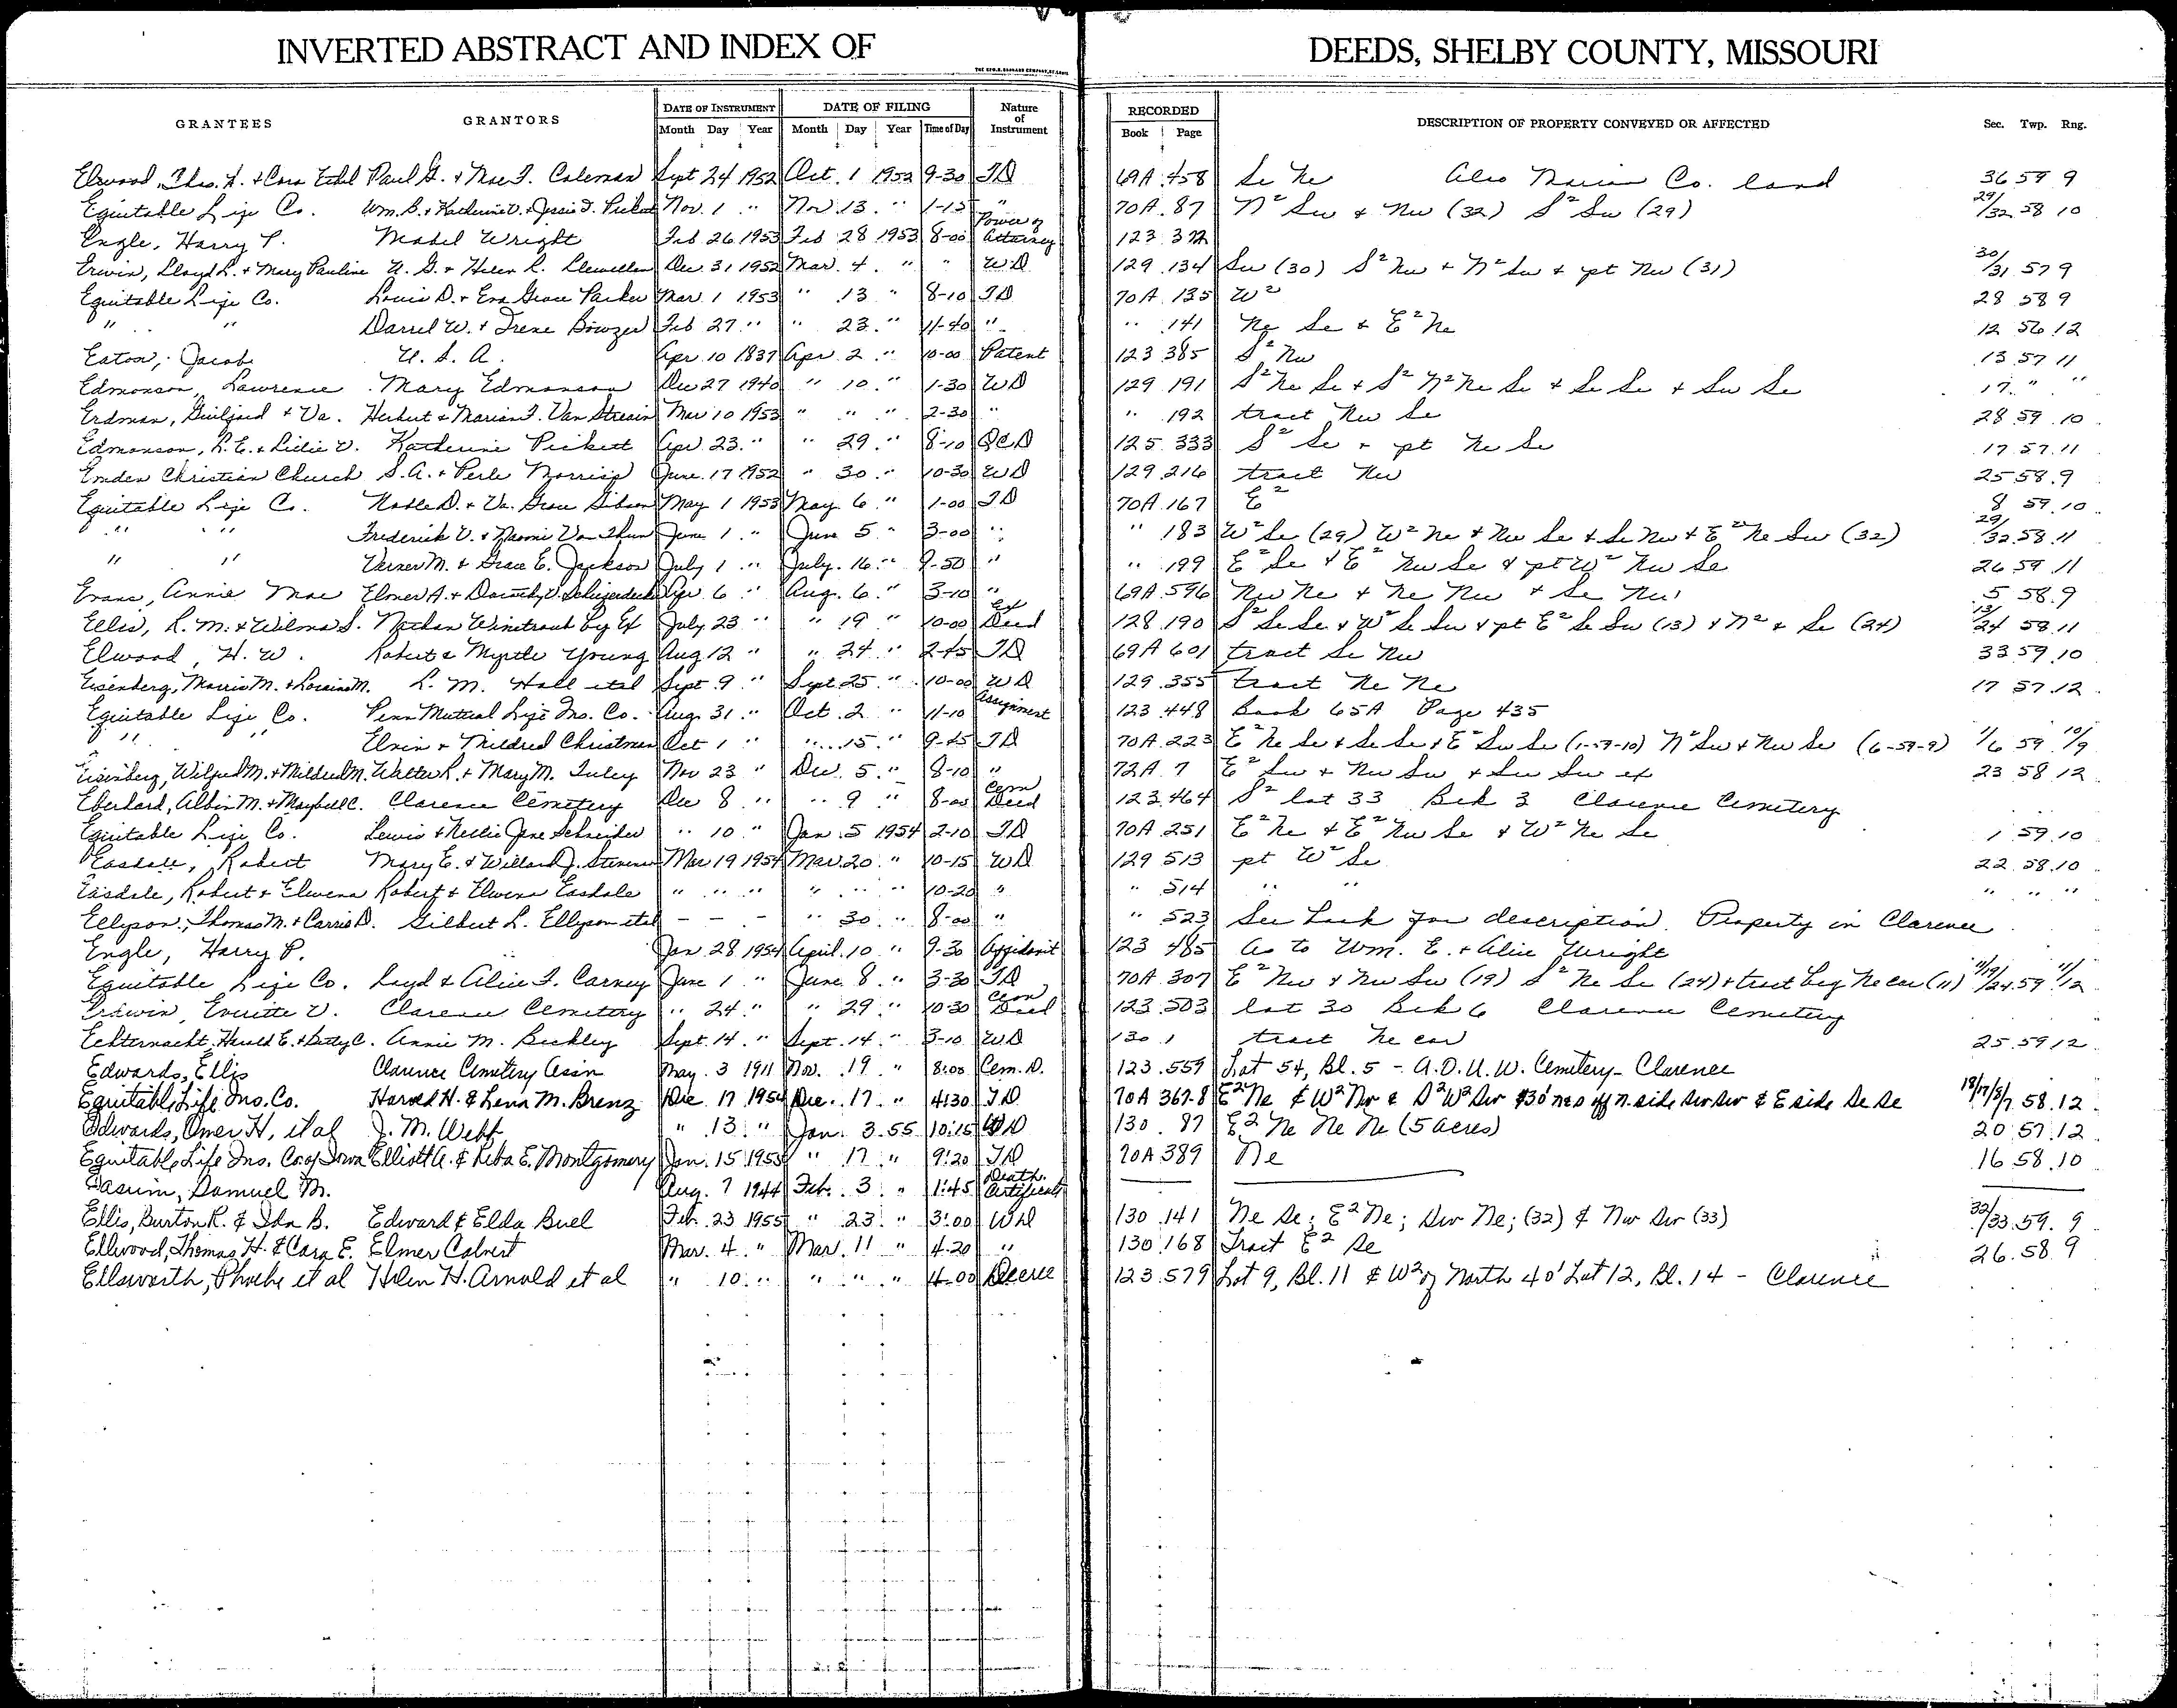 INVERTED ABSTRACT AND INDEX OF DEEDS, SHELBY COUNTY, MISSOURI
GRANTEES GRANTORS DATE OF INSTRUMENT DATE OF FILING Nature of Instrument RECORDED DESCRIPTION OF PROPERTY CONVEYED OR AFFECTED Sec. Twp. Rng.
Month Day Year Month Day Year Time of Day Book Page
Elwood, Thos. H. + Cora Ethel Paul G. + Mae F. Coleman Sept 24 1952 Oct. 1 1952 9-30 TD 69A 458 Se Ne Also Marion Co. land 36 59 9
Equitable Life Co. Wm. B. + Katherine V. + Jessie F. Nov. 1 " Nov. 13 " 1-15 " 70A 87 N² Sw + Nw (32) S² Sw (29) 29/32 58 10
Engle, Harry P. Mabel Wright Feb 26 1953 Feb 28 1953 8-00 Power of Attorney 123 372
Erwin, Lloyd L. + Mary Pauline U. G. + Helen R. Llewellen Dec 31 1952 Mar. 4 " " WD 129 134 Sw (30) S² Nw + N² Sw + pt Nw (31) 30/31 57 9
Equitable Life Co. Louis D. + Eva Grace Parker Mar. 1 1953 " 13 " 8-10 TD 70A 135 W² 28 58 9
" " Darrel W. + Irene Bowzer Feb 27 " " 23 " 11-40 " " 141 Ne Se + E² Ne 12 56 12
Eaton, Jacob U. S. A. Apr 10 1837 Apr. 2 " 10-00 Patent 123 385 S² Nw 13 57 11
Edmonson, Lawrence Mary Edmonson Dec 27 1940 " 10 " 1-30 WD 129 191 S² Ne Se + S² N² Ne Se + Se Se + Sw Se 17 " "
Erdman, Guilford + Va. Herbert + Marian F. Van Mar 10 1953 " " " 2-30 " " 192 tract Nw Se 28 59 10
Edmonson, L. E. + Lillie V. Katherine Pickett Apr 23 " " 29 " 8-10 QCD 125 333 S² Se + pt Ne Se 17 57 11
Emden Christian Church S. A. + Perle June 17 1952 " 30 " 10-30 WD 129 216 tract Nw 25 58 9
Equitable Life Co. Noble D. + Va. Grace Gibson May 1 1953 May 6 " 1-00 TD 70A 167 E² 8 59 10
" " Frederick V. + Naomi Von Thun June 1 " June 5 " 3-00 " " 183 W² Se (29) W² Ne + Nw Se + Se Nw + E² Ne Sw (32) 29/32 58 11
" " Verner M. + Grace E. Jackson July 1 " July 16 " 9-50 " " 199 E² Se + E² Nw Se + pt W² Nw Se 26 59 11
Evans, Annie Mae Elmer A. + Dorothy V. Apr 6 " Aug. 6 " 3-10 " 69A 596 Nw Ne + Ne Nw + Se Nw 5 58 9
Ellis, R. M. + Wilma S. Nathan Winetraub by Ex July 23 " " 19 " 10-00 Ex Deed 128 190 S² Se Se + W² Se Sw + pt E² Se Sw (13) + N² + Se (24) 13/24 58 11
Elwood, H. W. Robert + Myrtle Young Aug 12 " " 24 " 2-45 TD 69A 601 tract Se Nw 33 59 10
Eisenberg, Morris M. + Loraine M. L. M. Hall etal Sept 9 " Sept 25 " 10-00 WD 129 355 tract Ne Ne 17 57 12
Equitable Life Co. Penn Mutual Life Ins. Co. Aug. 31 " Oct. 2 " 11-10 Assignment 123 448 Book 65A Page 435
" " Elvin + Mildred Christman Oct 1 " " 15 " 9-45 TD 70A 223 E² Ne Se + Se Se + E² Sw Se (1-59-10) N² Sw + Nw Se (6-59-9) 1/6 59 10/9
Eisenberg, Wilfred M. + Mildred M. Walter R. + Mary M. Tuley Nov 23 " Dec. 5 " 8-10 " 72A 7 E² Sw + Nw Sw + Sw Sw ex 23 58 12
Eberhard, Albin M. + Maybell C. Clarence Cemetery Dec 8 " " 9 " 8-00 Cem Deed 123 464 S² lot 33 Bek 3 Clarence Cemetery
Equitable Life Co. Lewis + Nellie Jane Schneider " 10 " Jan. 5 1954 2-10 TD 70A 251 E² Ne + E² Nw Se + W² Ne Se 1 59 10
Easdale, Robert Mary E. + Willard J. Stevens Mar 19 1954 Mar. 20 " 10-15 WD 129 513 pt W² Se 22 58 10
Easdale, Robert + Elwena Robert + Elwena Easdale " " " " " " 10-20 " " 514 " " " " "
Ellyson, Thomas M. + Carrie D. Gilbert L. Ellyson etal - - - " 30 " 8-00 " " 523 See book for description. Property in Clarence
Engle, Harry P. Jan 28 1954 April 10 " 9-30 Affidavit 123 485 As to Wm. E. + Alice Wright
Equitable Life Co. Loyd + Alice F. Carney June 1 " June 8 " 3-30 TD 70A 307 E² Nw + Nw Sw (19) S² Ne Se (24) + tract beg Ne cor (11) 11/19/24 59 11/12
Erdwin, Everitte V. Clarence Cemetery " 24 " " 29 " 10-30 Cem Deed 123 503 lot 30 Bek 6 Clarence Cemetery
Echternacht, Herald E. + Betty C. Annie M. Beckley Sept. 14 " Sept. 14 " 3-10 WD 130 1 tract Ne cor 25 59 12
Edwards, Ellis Clarence Cemetery Assn May 3 1911 Nov. 19 " 8:00 Cem. D. 123 559 Lot 54, Bl. 5 - A.O.U.W. Cemetery - Clarence
Equitable Life Ins. Co. Harold H. & Lena M. Brenz Dec. 17 1954 Dec. 17 " 4:30 T.D. 70A 367-8 E² Ne & W² Nw & S² W² Sw & 30' n & s off n. side Sw Sw & E side Se Se 18/17/8/7 58 12
Edwards, Omer H, et al J. M. Webb " 13 " Jan. 3 55 10:15 WD 130 87 E² Ne Ne Ne (5 acres) 20 57 12
Equitable Life Ins. Co. of Iowa Elliott A. & Reba E. Montgomery Jan. 15 1955 " 17 " 9:20 TD 70A 389 Ne 16 58 10
Samuel M. Aug. 7 1944 Feb. 3 " 1:45 Death Certificate
Ellis, Burton R. & Ida B. Edward & Elda Buel Feb. 23 1955 " 23 " 3:00 WD 130 141 Ne Se; E² Ne; Sw Ne; (32) & Nw Sw (33) 32/33 59 9
Ellwood, Thomas H. & Cara E. Elmer Calvert Mar. 4 " Mar. 11 " 4-20 " 130 168 Tract E² Se 26 58 9
Ellsworth, Phoebe et al Helen H. Arnold et al " 10 " " " " 4-00 Decree 123 579 Lot 9, Bl. 11 & W² of North 40' Lot 12, Bl. 14 - Clarence